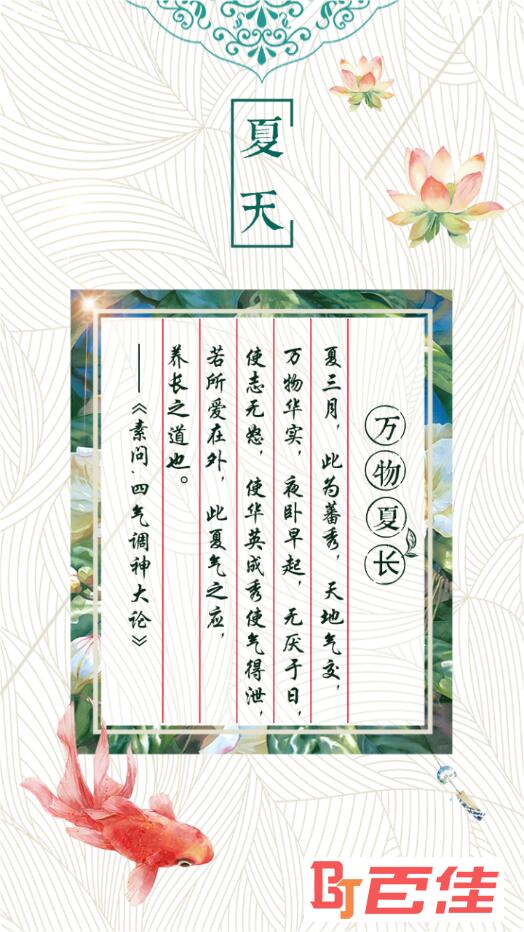 夏天
万物夏长
夏三月，此为蕃秀，天地气交，
万物华实，夜卧早起，无厌于日，
使志无怒，使华英成秀使气得泄，
若所爱在外，此夏气之应，
养长之道也。
——《素问·四气调神大论》
BJ百佳